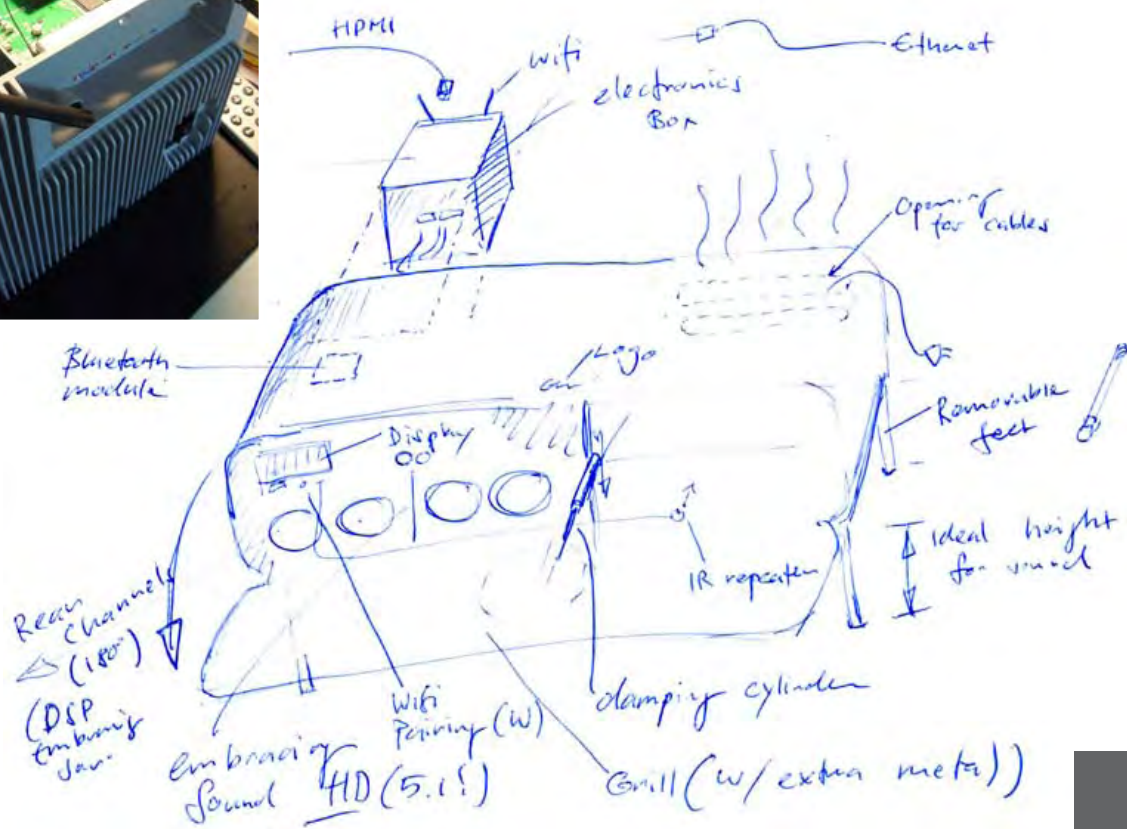 HDMI
wifi
Ethernet
electronics
Box
Opening
for cables
Bluetooth
module
Logo
Display
Removable
feet
IR repeater
Ideal height
for sound
Rear
Channels
(180°)
(DSP
embracing
Wifi
Pairing (W)
damping cylinder
embracing
sound HD (5.1!)
Grill (w/ extra metal)